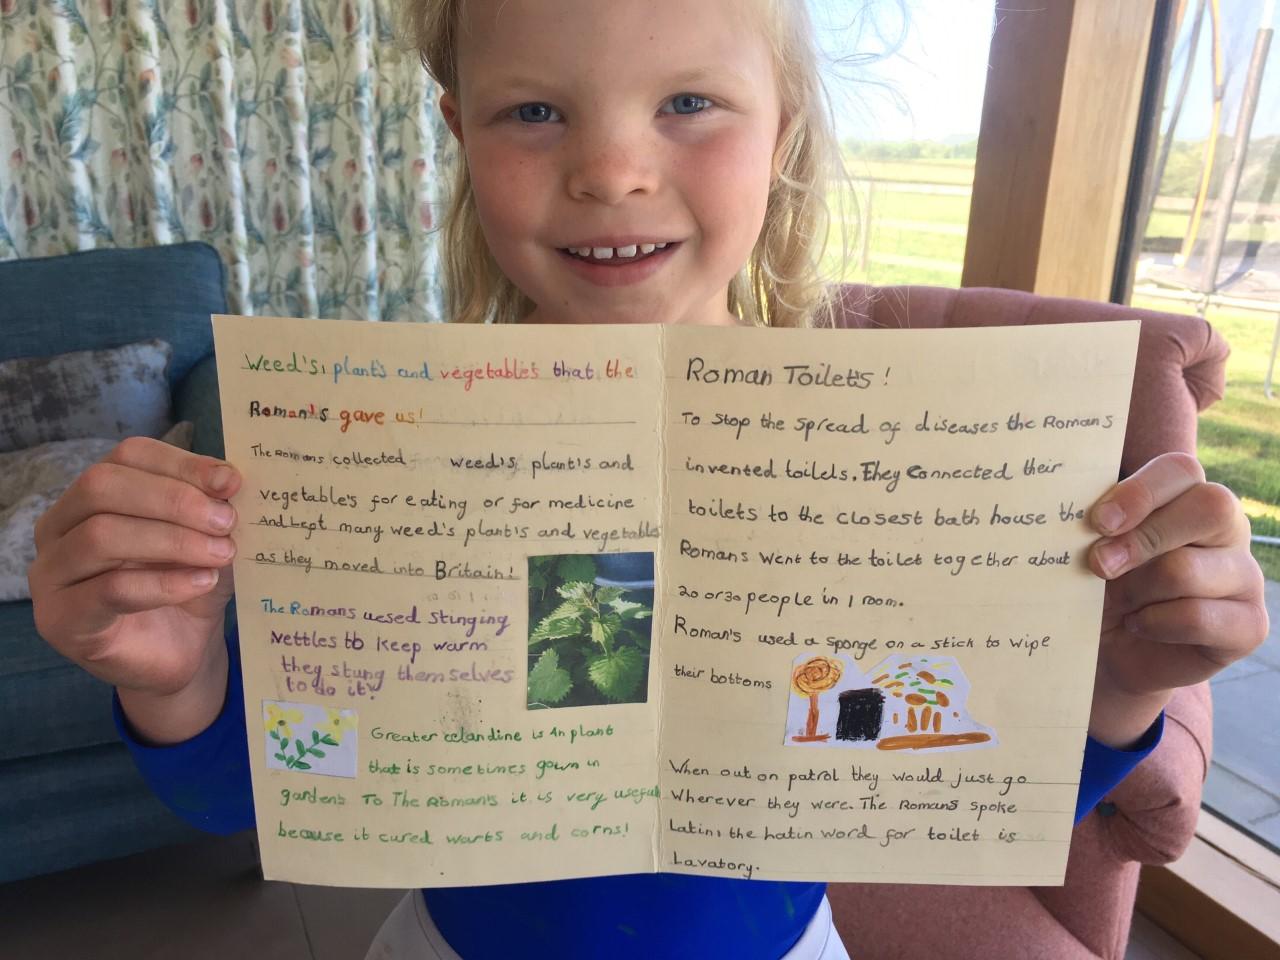 Weed's, plant's and vegetable's that the
Roman's gave us!
The Romans collected weed's, plant's and
vegetable's for eating or for medicine
And kept many weed's plant's and vegetables
as they moved into Britain!
The Romans uesed stinging
nettles to keep warm
they stung themselves
to do it!
Greater celandine is An plant
that is sometimes gown in
gardens To The Roman's it is very useful
because it cured warts and corns!
Roman Toilets!
To stop the spread of diseases the Romans
invented toilets. They connected their
toilets to the closest bath house the
Romans went to the toilet together about
20 or 30 people in 1 room.
Roman's used a sponge on a stick to wipe
their bottoms
When out on patrol they would just go
wherever they were. The Romans spoke
Latin, the Latin word for toilet is
Lavatory.